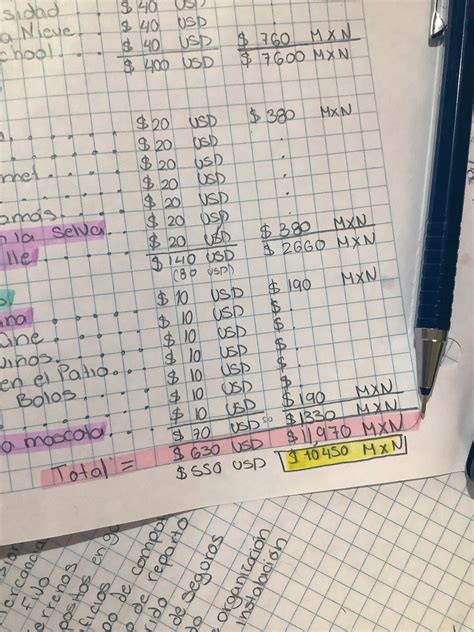 sidad $40 USD
a Nieve $40 USD
chool $40 USD $760 MXN
$400 USD $7600 MXN
$20 USD $380 MXN
$20 USD
$20 USD
rnet $20 USD
$20 USD
amás $20 USD
la Selva $20 USD $380 MXN
lle $140 USD $2660 MXN
(80 USD)
$10 USD $190 MXN
$10 USD
$10 USD
uiños $10 USD
en el Patio $10 USD
Bolos $10 USD
$10 USD $190 MXN
a mascota $70 USD 50 $1330 MXN
Total = $630 USD $11970 MXN
$550 USD $10450 MXN
Fijo
de reparto
de seguros
organización
instalación